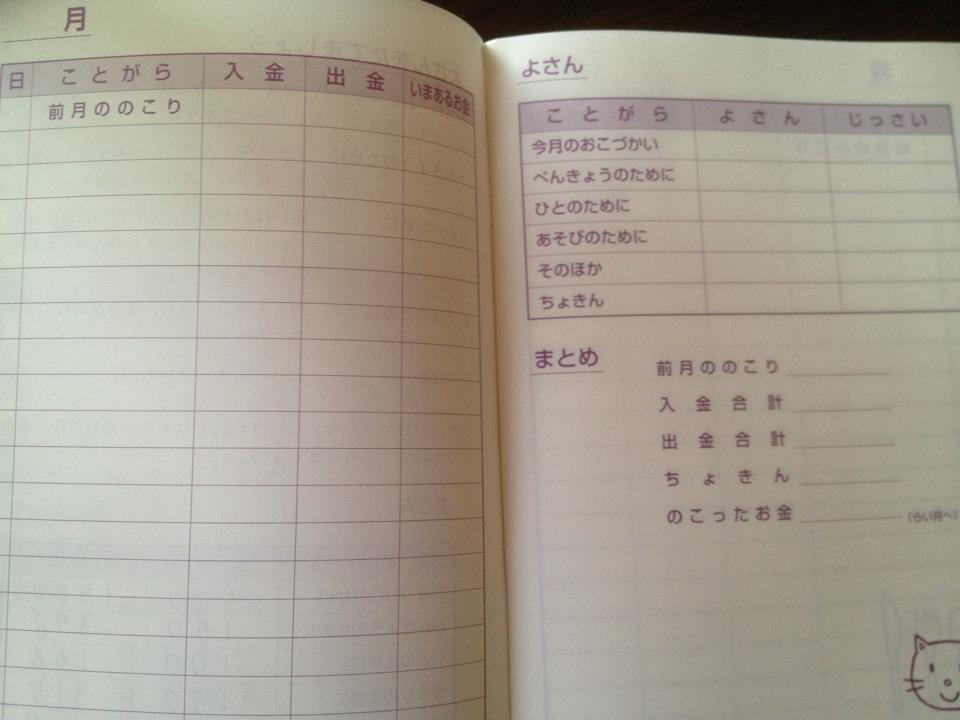 月
日 ことがら 入金 出金 いまあるお金
前月ののこり
よさん
ことがら よさん じっさい
今月のおこづかい
べんきょうのために
ひとのために
あそびのために
そのほか
ちょきん
まとめ
前月ののこり
入金合計
出金合計
ちょきん
のこったお金 (らい月へ)